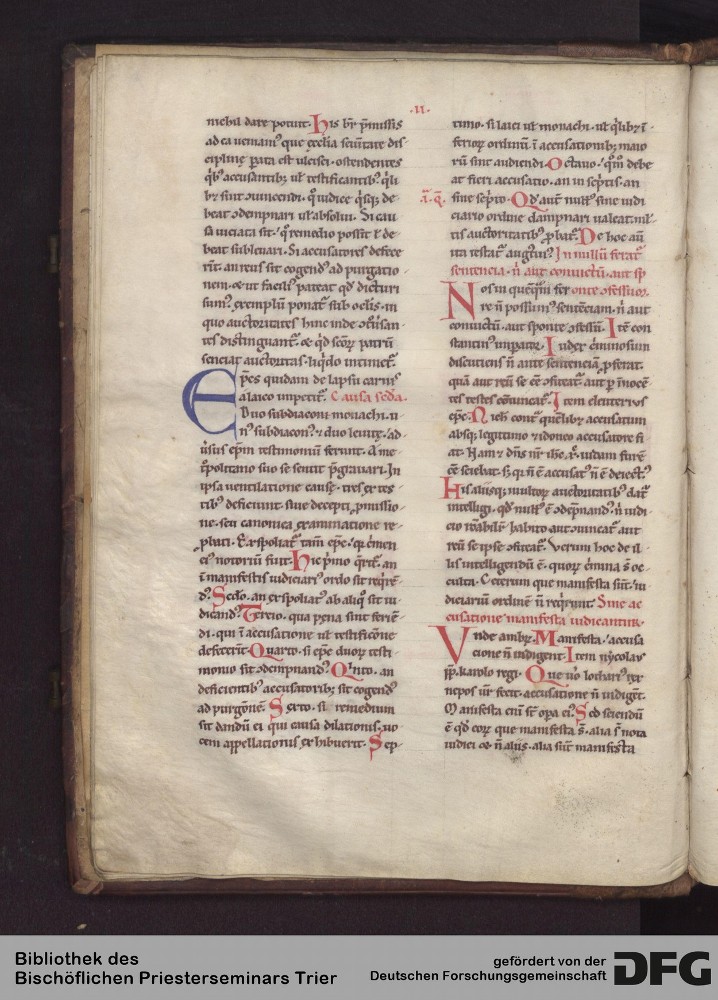 .II.
nichil dare potuit. His br̄ p̄missis
ad ca ueniam᾽ que ęcclia seueritate dis-
cipline parata est ulcisci. ostendentes
qͥb᾽ accusantib; ul᾽ testificantib᾽ qͥli-
br̄ sint ꝯuincendi. qͦ iudice qͥsq; de-
beat ꝯdempnari ul᾽ absolui. Si cau
sa uiciata sit. qͦ remedio possit ł de-
beat subleuari. Si accusatores defece
rīt. an reus sit cogend᾽ ad purgatio-
nem. & ut facili᾽ pateat qd᾽ dicturi
sum᾽. exemplū ponat᾽ sub oclis. in
quo auctoritates hinc inde ꝯuersan-
tes distinguant᾽. & qͥd scōꝝ patrū
senciat auctoritas. liqͥdo intimet᾽.
Epēs quidam de lapsu carnis
a laico impetit᾽. Causa secda.
Duo subdiaconi monachi. u
n᾽ subdiacon᾽. & duo leuitę. ad-
uersus epm̄ testimoniū ferunt. A me
tͦpolitano suo se sentit p̄grauari. In
ipsa uentilatione causę. tres ex tes-
tib᾽ deficiunt. siue decepti pmissio
ne. seu canonica examinatione re-
pbati. Exspoliat᾽ tam̄ epc̄. qͥ crimen
ei᾽ notoriū fuit. Hic p̄mo qͥrit᾽. an
ī manifestis iudiciari᾽ ordo sit reqͥre
d᾽. Scdo. an exspoliat᾽ ab aliqͦ sit iu-
dicand᾽. Tercio. qua pena sint ferie
di. qui ī accusatione ul᾽ testificōne
defecerīt. Quarto. si epc̄ duoꝝ testi
monio sit ꝯdempnand᾽. Qͥnto. an
deficientib᾽ accusatorib; sit cogend᾽
ad purgōnē. Sexto. si remedium
sit dandū ei qui causa dilationis. uo
cem appellationis exhibuerit. Sep-
timo. si laici ul᾽ monachi. ul᾽ qͥlib; ī-
ferioꝝ ordinū. ī accusationib; maio
rū sint audiendi. Octauo. qm̄ debe
at fieri accusatio. an in scriptis. an
.I. Q. sine scripto. Qd᾽ aut᾽ null᾽ sine iudi
ciario ordine dampnari ualeat. ml᾽-
tis auctoritatib᾽ ꝓbat᾽. De hoc aū
ita testat᾽ augustin᾽. In nullū ferat᾽
sentencia. n̄ aut conuictū. aut sp̄
Nos in quēqm̄ sen- onte ꝯfessuꝝ.
re n̄ possum᾽ sentenciam. n̄ aut
conuictū. aut sponte ꝯfessū. Itē con
stantin᾽ imperator. Iudex criminosum
discutiens n̄ ante sentenciā ꝓferat.
quā aut reū se eē ꝯfiteat᾽. aut p innocē
tes testes cōuincat᾽. Item eleuterius
epc̄. Nich᾽ contͣ quēlib; accusatum
absq; legitimo & idoneo accusatore fi
at. Nam & dn̄s nr̄ ihc̄ xp̄c iudam furē
eē sciebat. sꝫ qͥ n̄ ē accusat᾽ n̄ ē deiect᾽.
His aliisq; multoꝝ auctoritatib᾽ dat᾽
intelligi. qd᾽ null᾽ ē ꝯdēpnand᾽. n̄ iudi-
cio rōabilit᾽ habito aut ꝯuincat᾽ aut
reū se ipse ꝯfiteat᾽. Verum hoc de il-
lis intelligendū ē. quoꝝ cͥmina s̄ oc-
culta. Ceterum que manifesta sūt. iu-
diciariū ordinē n̄ reqͥrunt. Sine ac
cusatione manifesta iudicantur.
Vnde ambr᾽. Manifesta. accusa
cione n̄ indigent. Item nycolaus
p̄p. karolo regi. Que ūo lothari᾽ rex
nepos ur̄ fecit. accusatione n̄ indigēt.
Manifesta eni sī opa ei᾽. Sed sciendū
ē qd eoꝝ que manifesta s̄. alia s̄ nota
iudici & n̄ aliis. alia sūt manifesta
Bibliothek des
Bischöflichen Priesterseminars Trier
gefördert von der
Deutschen Forschungsgemeinschaft
DFG